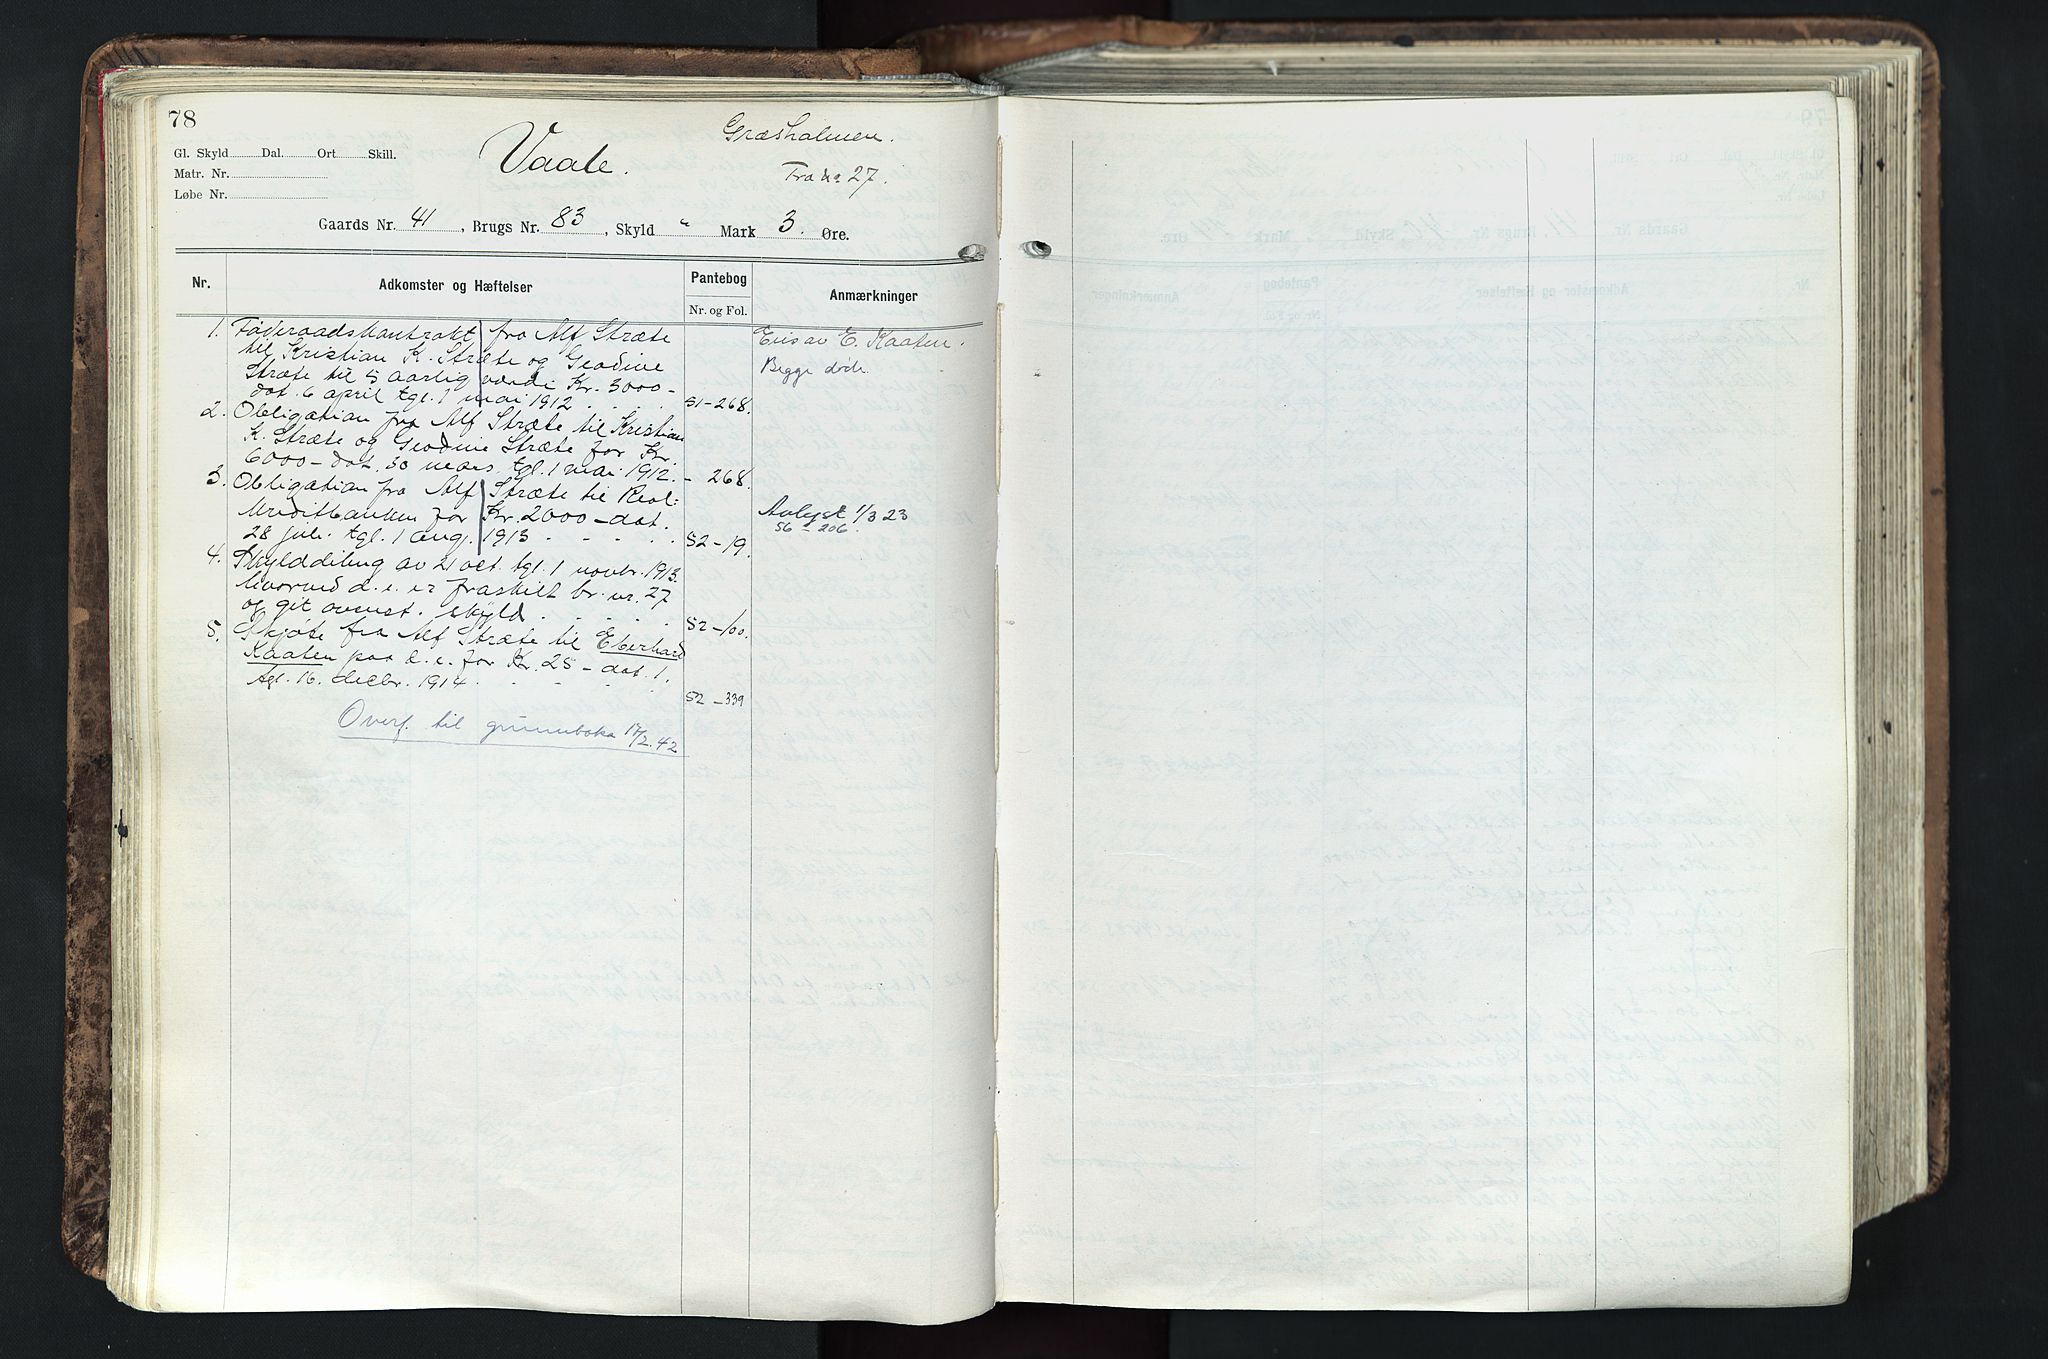 78
Græsholmen.
Gl. Skyld Dal. Ort Skill.
Vaale.
Fra bno 27.
Matr. Nr.
Løbe Nr.
Gaards Nr. 41, Brugs Nr. 83, Skyld " Mark 3. Øre.
Nr. Adkomster og Hæftelser Pantebog Anmærkninger
Nr. og Fol.
1. Føderaadskontrakt fra Alf Stræte Eies av E. Kaaten.
til Kristian K. Stræte og Geodine
Stræte til 5 aarlig værdi Kr. 3000- Begge døde.
dat. 6 april tgl. 1 mai 1912 . . . 51-268.
2. Obligation fra Alf Stræte til Kristian
K. Stræte og Geodine Stræte for Kr.
6000- dat. 30 mars tgl. 1 mai 1912. - 268.
3. Obligation fra Alf Stræte til Real-
kreditbanken for Kr. 2000- dat. Avlyst 1/3 23
28 juli tgl. 1 aug. 1913 . . . . . 52-19. 56-206.
4. Skylddeling av 21 oct. tgl. 1 novbr. 1913.
hvorved d. e. er fraskilt br. nr. 27
og git ovenst. skyld . . . . . 52-100.
5. Skjøte fra Alf Stræte til Eberhard
Kaaten paa d. e. for Kr. 25- dat. 1.
tgl. 16. decbr. 1914 . . . . . 52-339
Overf. til grunnboka 17/2. 42